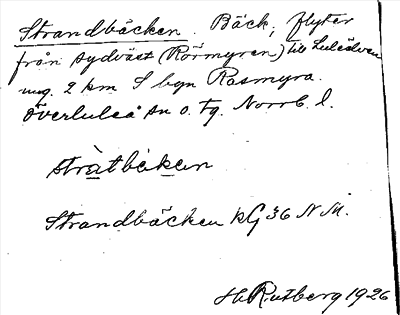 Strandbäcken. Bäck, flyter
från sydväst (Rörmyren) till Luleälven
ung. 2 km S byn Rasmyra.
Överluleå sn o. tg. Norrb. l.
stratbäken
Strandbäcken kG 36 N M.
H. Rutberg 1926